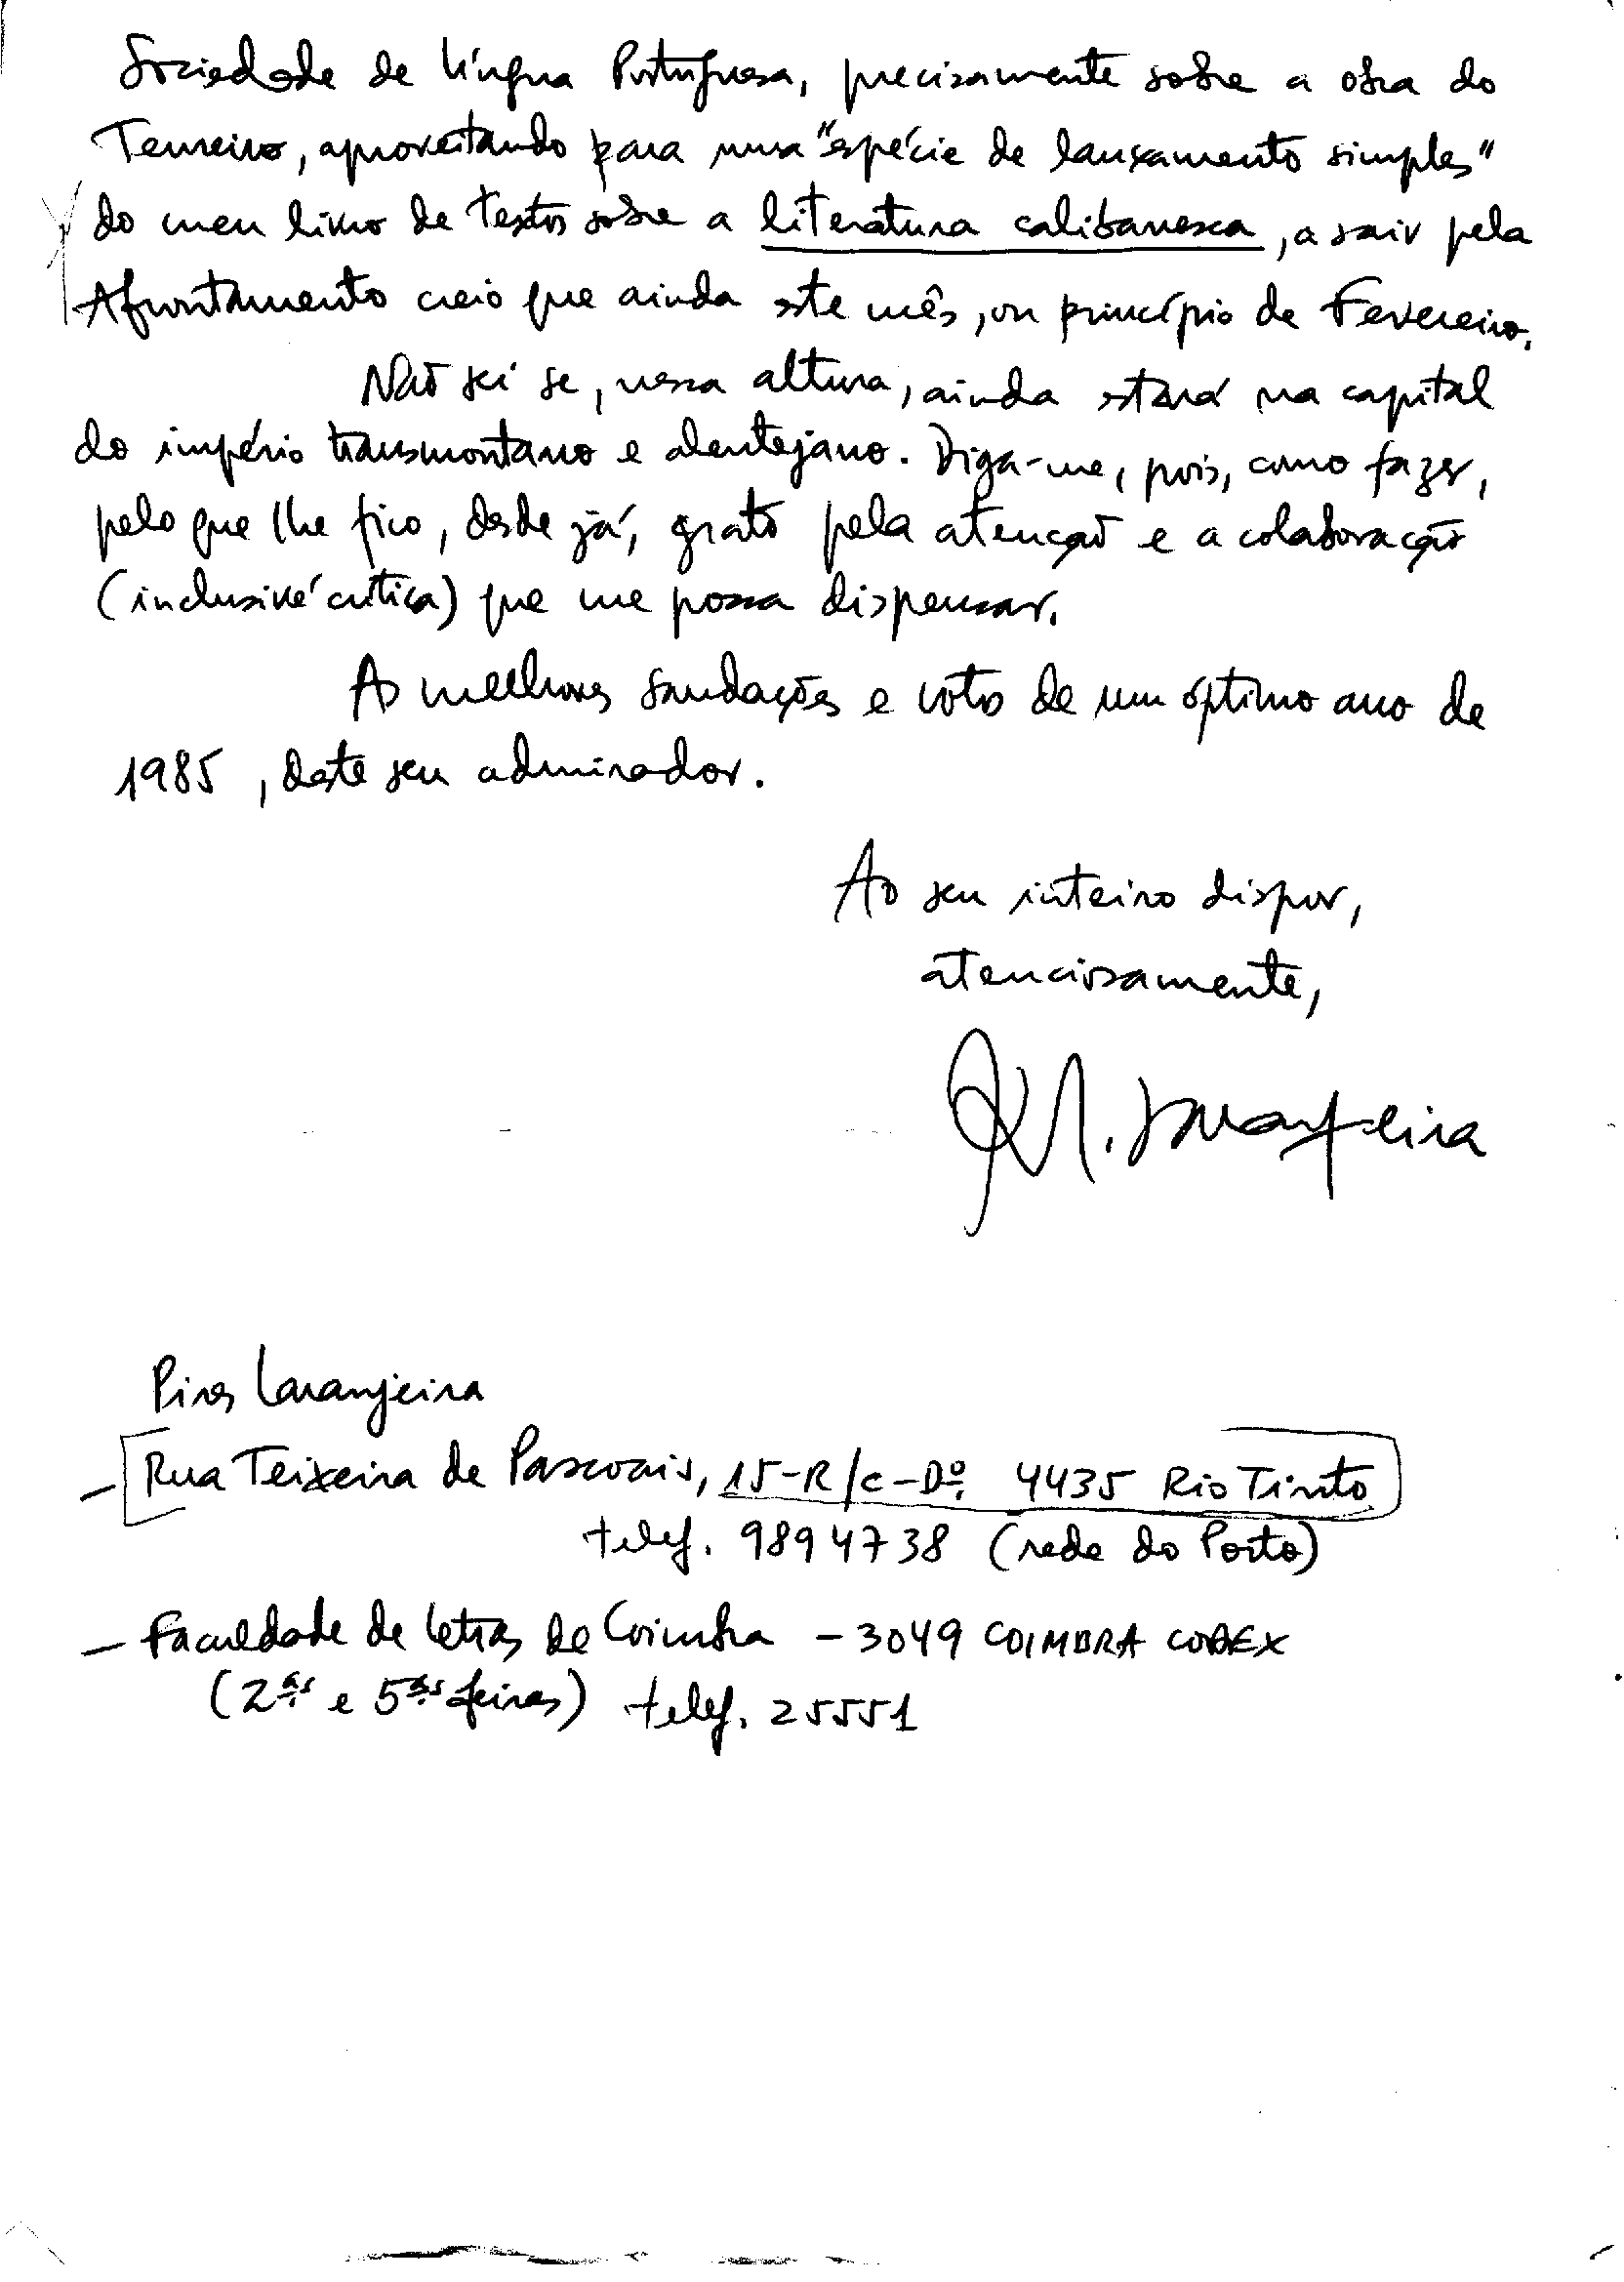 Sociedade de Língua Portuguesa, precisamente sobre a obra do
Tenreiro, aproveitando para uma "espécie de lançamento simples"
do meu livro de textos sobre a literatura calibanesca, a sair pela
Afrontamento creio que ainda este mês, ou princípio de Fevereiro.
Não sei se, nessa altura, ainda estará na capital
do império transmontano e alentejano. Diga-me, pois, como fazer,
pelo que lhe fico, desde já, grato pela atenção e a colaboração
(inclusivé crítica) que me possa dispensar.
As melhores saudações e votos de um óptimo ano de
1985, deste seu admirador.
Ao seu inteiro dispor,
atenciosamente,
Laranjeira
Pires Laranjeira
- Rua Teixeira de Pascoais, 15-R/c-Dº. 4435 Rio Tinto
telef. 9894738 (rede do Porto)
- Faculdade de Letras de Coimbra - 3049 COIMBRA CODEX
(2ªs e 5ªs feiras) telef. 25551